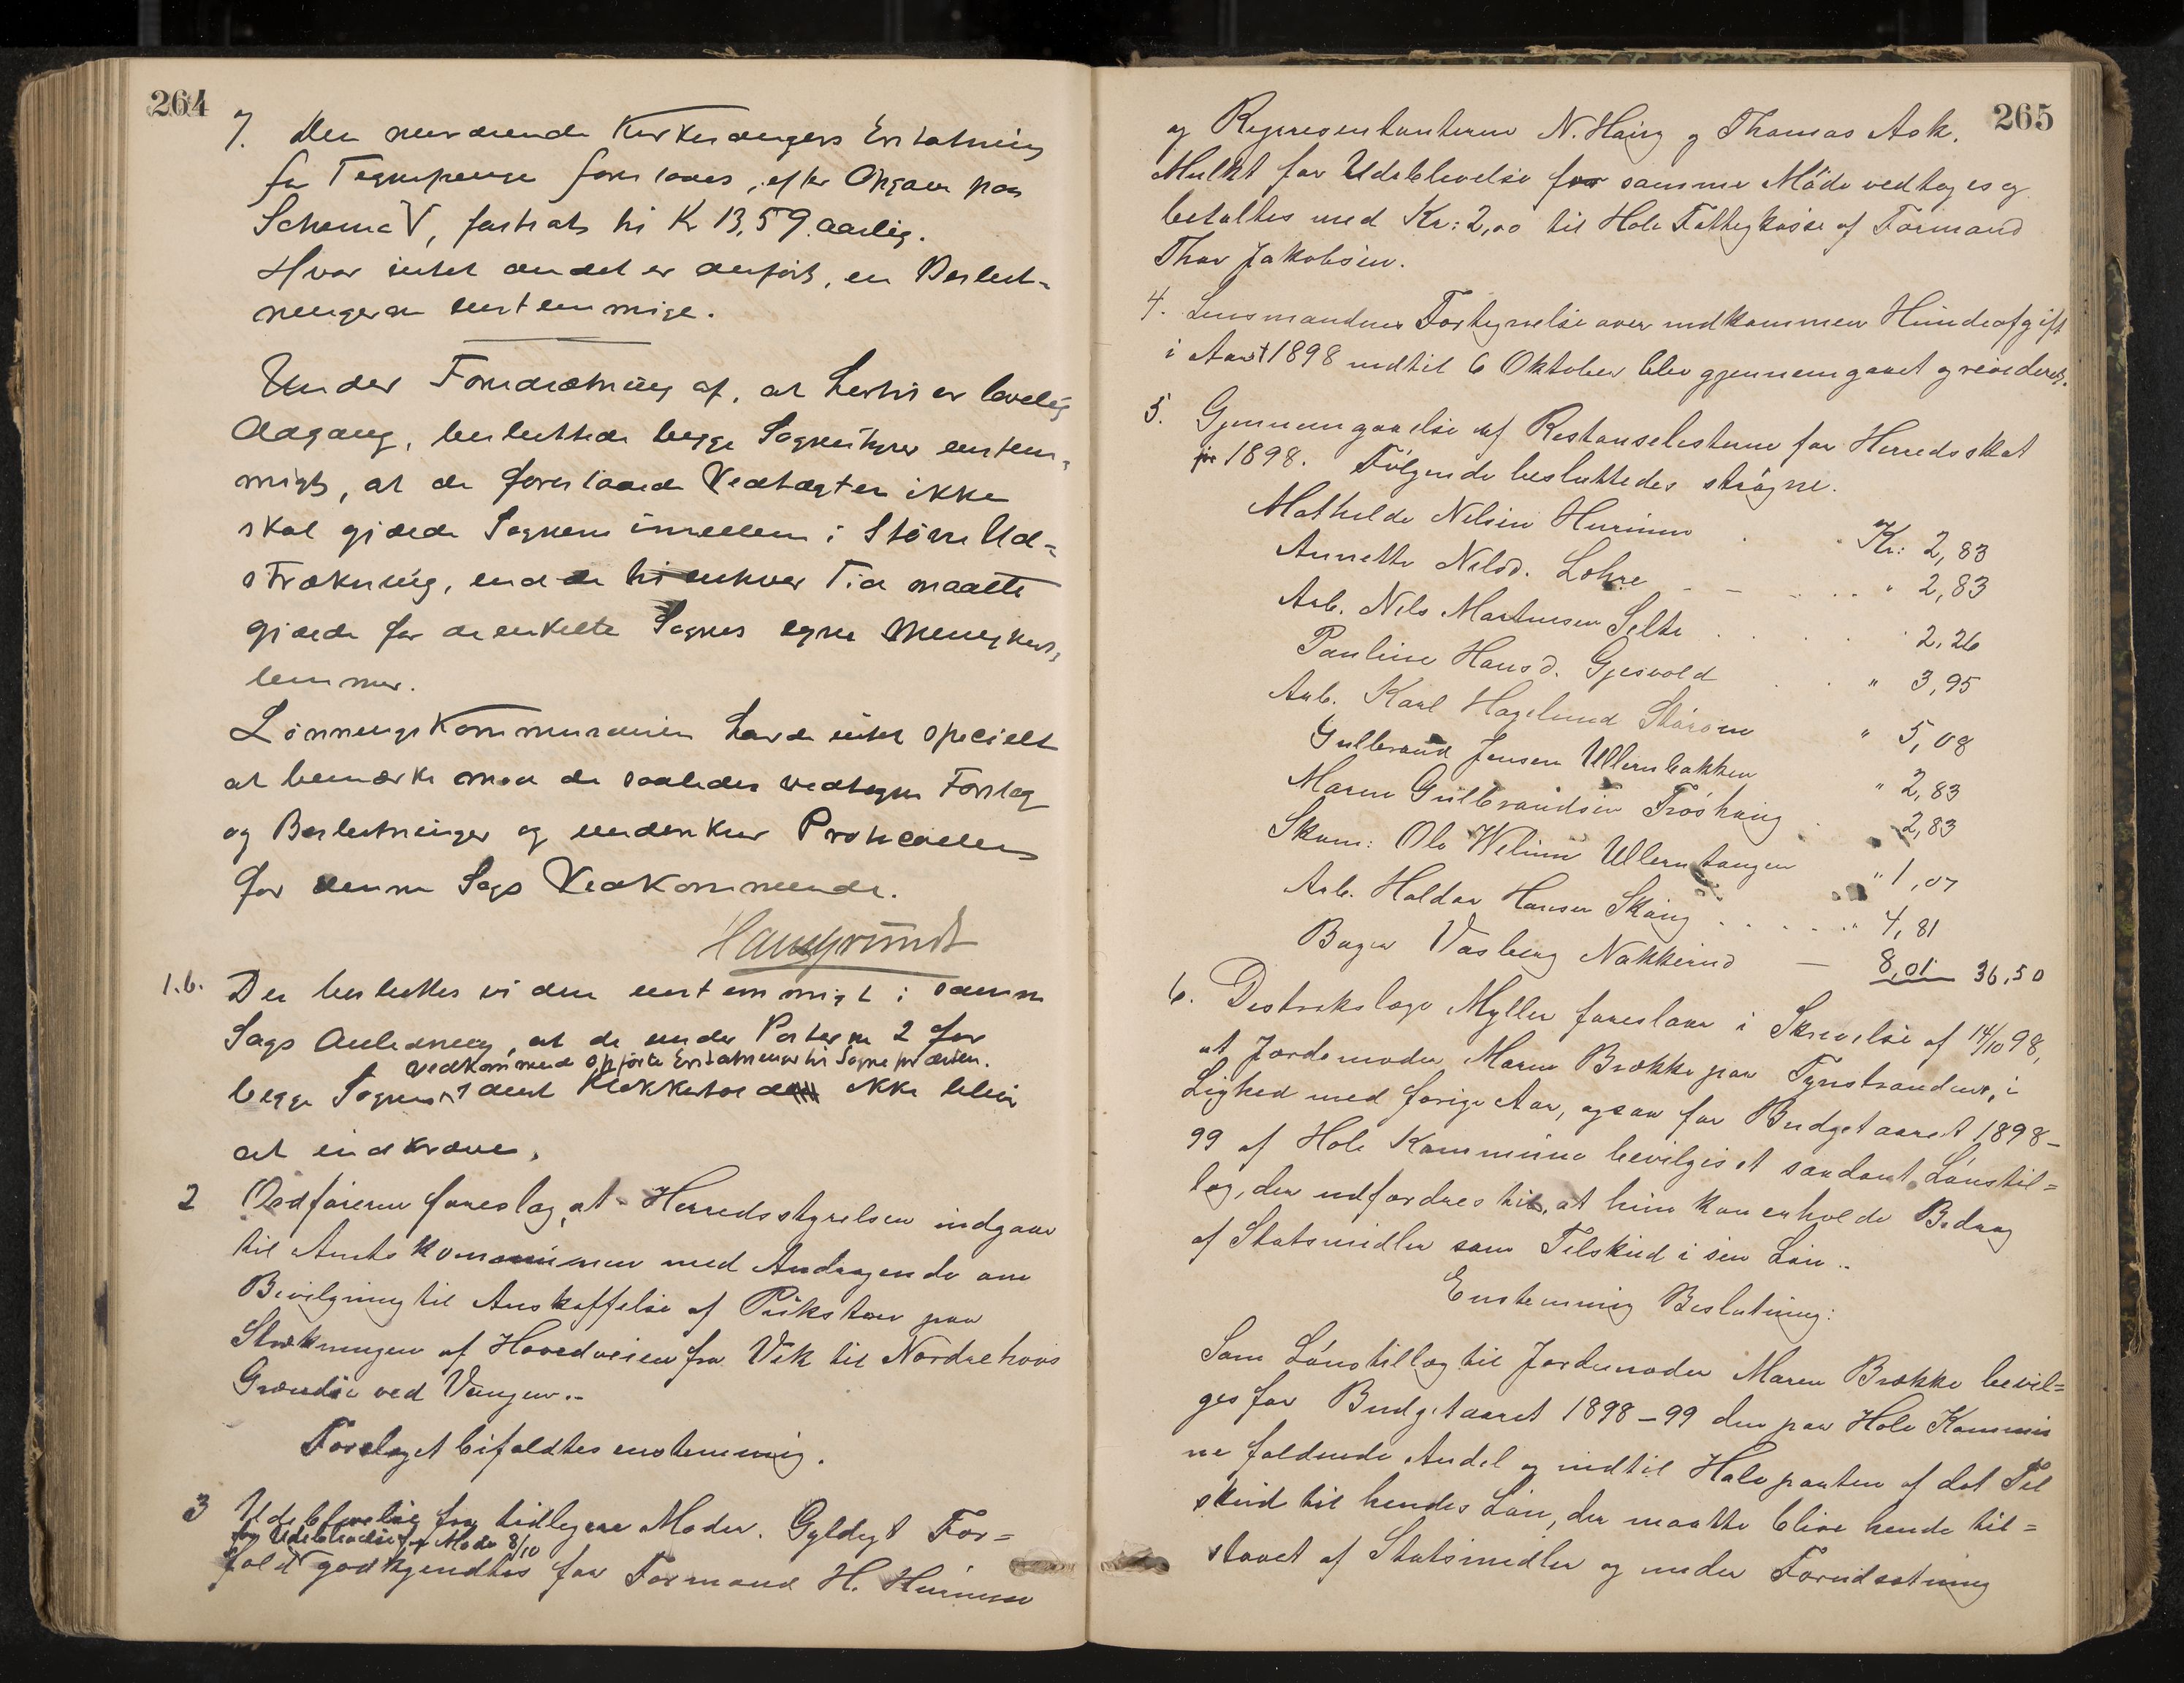 264
7. Den nuværende Kirkesangers Erstatning
for Tegnepenge foreslaaes, efter Opgave paa
Schema V, fastsat til Kr 13,59 aarlig.
Hvor intet andet er anført, er Beslut-
ningerne enstemmige.
Under Forudsætning af, at hertil er lovlig
Adgang, besluttede begge Sognestyrer enstem-
migt, at de foreslaaede Vedtægter ikke
skal gjælde Sognene imellem i større Ud-
strækning, end de til enhver Tid maatte
gjælde for de enkelte Sognes egne Menigheds-
lemmer.
Lønningskommissionen havde intet specielt
at bemærke mod de saaledes vedtagne Forslag
og Beslutninger og underskrev Protocollen
for denne Sags Vedkommende.
Hans Grundt
1.b. Der besluttes videre enstemmigt i samme
Sags Anledning, at de under Posterne 2 for
vedkommende opførte Erstatninger til Sognepræsten
begge Sognes samt Klokkertold ikke bliver
at indkræve.
2 Ordføreren foreslog, at Herredsstyrelsen indgaar
til Amtskommunen med Andragende om
Bevilgning til Anskaffelse af Pukstein paa
Strækningen af Hovedveien fra Vik til Norderhovs
Grændse ved Vangen.-
Forslaget bifaldtes enstemmig.
3 Udeblivelse fra tidligere Møder. Gyldigt For-
for Udeblivelse fra Møde 8/10
fald godkjendtes for Formand H. Hurum
265
og Repræsentanterne N. Haug og Thomas Ask.
Mulkt for Udeblivelse fra samme Møde vedtoges og
betaltes med Kr: 2,00 til Hole Fattigkasse af Formand
Thor Jakobsen.
4. Lensmandens Fortegnelse over indkommen Hundeafgift
i Aaret 1898 indtil 6 Oktober blev gjennemgaaet og revideret.
5. Gjennemgaaelse af Restanselisterne for Herredsskat
for 1898. Følgende besluttedes strøgne.
Mathilde Nilsen Hurum . . Kr: 2,83
Annette Nilsd. Lohre - - . . . " 2,83
Arb. Nils Martinsen Selte . . . . . 2,26
Pauline Hansd. Gjesvold . . " 3,95
Arb. Karl Hagelund Storøen " 5,08
Gulbrand Jensen Ullernbakken " 2,83
Maren Gulbrandsen Trøshaug . " 2,83
Skom: Ole Welum Ullerntangen " 1,07
Arb. Haldor Hansen Skaug . . . . . " 4,81
Bager Vasberg Nakkerud — 8,01 36,50
6. Distriktslæge Myller foreslaar i Skrivelse af 14/10 98,
at Jordemoder Maren Brække paa Tyristranden, i
Lighed med forige Aar, ogsaa for Budgetaaret 1898-
99 af Hole Kommune bevilges et saadant Lønstil=
læg, der udfordres til, at hun kan erholde Bidrag
af Statsmidler som Tilskud i sin Løn..
Enstemmig Beslutning:
Som Lønstillæg til Jordemoder Maren Brække bevil=
ges for Budgetaaret 1898-99 den paa Hole Kommu
ne faldende Andel og indtil Halvparten af det Til
skud til hendes Løn, der maatte blive hende til=
staaet af Statsmidler og under Forudsætning